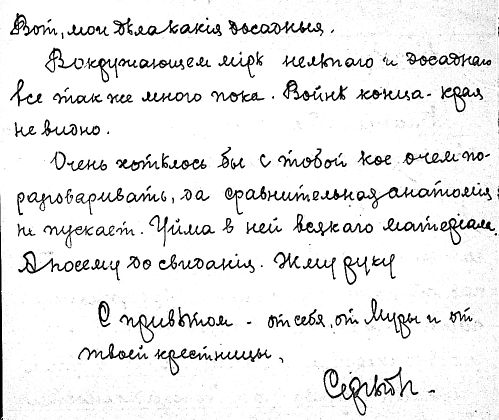 Вот, мои дѣла какія досадныя.
Вокружающем мірѣ нелѣпаго и досаднаго
все так же много пока. Войнѣ конца-края
не видно.
Очень хотѣлось бы с тобой кое о чем по-
разговаривать, да сравнительная анатомія
не пускает. Уйма в ней всякаго матеріала.
А посему до свиданія. Жму руку
С привѣтом - от себя, от Муры и от
твоей крестницы,